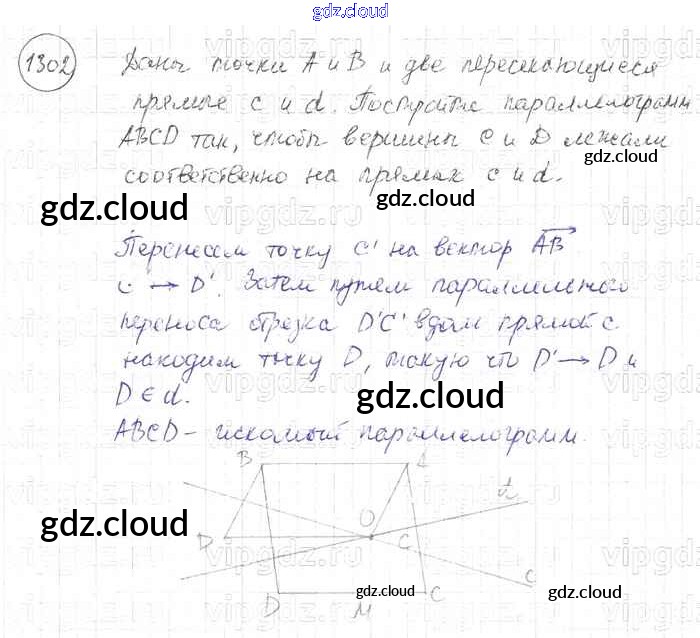 gdz.cloud
1302 Даны точки A и B и две пересекающиеся
прямые c и d. Постройте параллелограмм
ABCD так, чтобы вершины C и D лежали
gdz.cloud
соответственно на прямых c и d.
gdz.cloud
gdz.cloud
Перенесем точку C' на вектор AB
C' → D'. Затем путем параллельного
переноса отрезка D'C' вдоль прямой c
находим точку D, такую что D' → D и
D ∈ d.
gdz.cloud
ABCD - искомый параллелограмм.
B
d
gdz.cloud
D
O
C
c
D
M
C
gdz.cloud
gdz.cloud